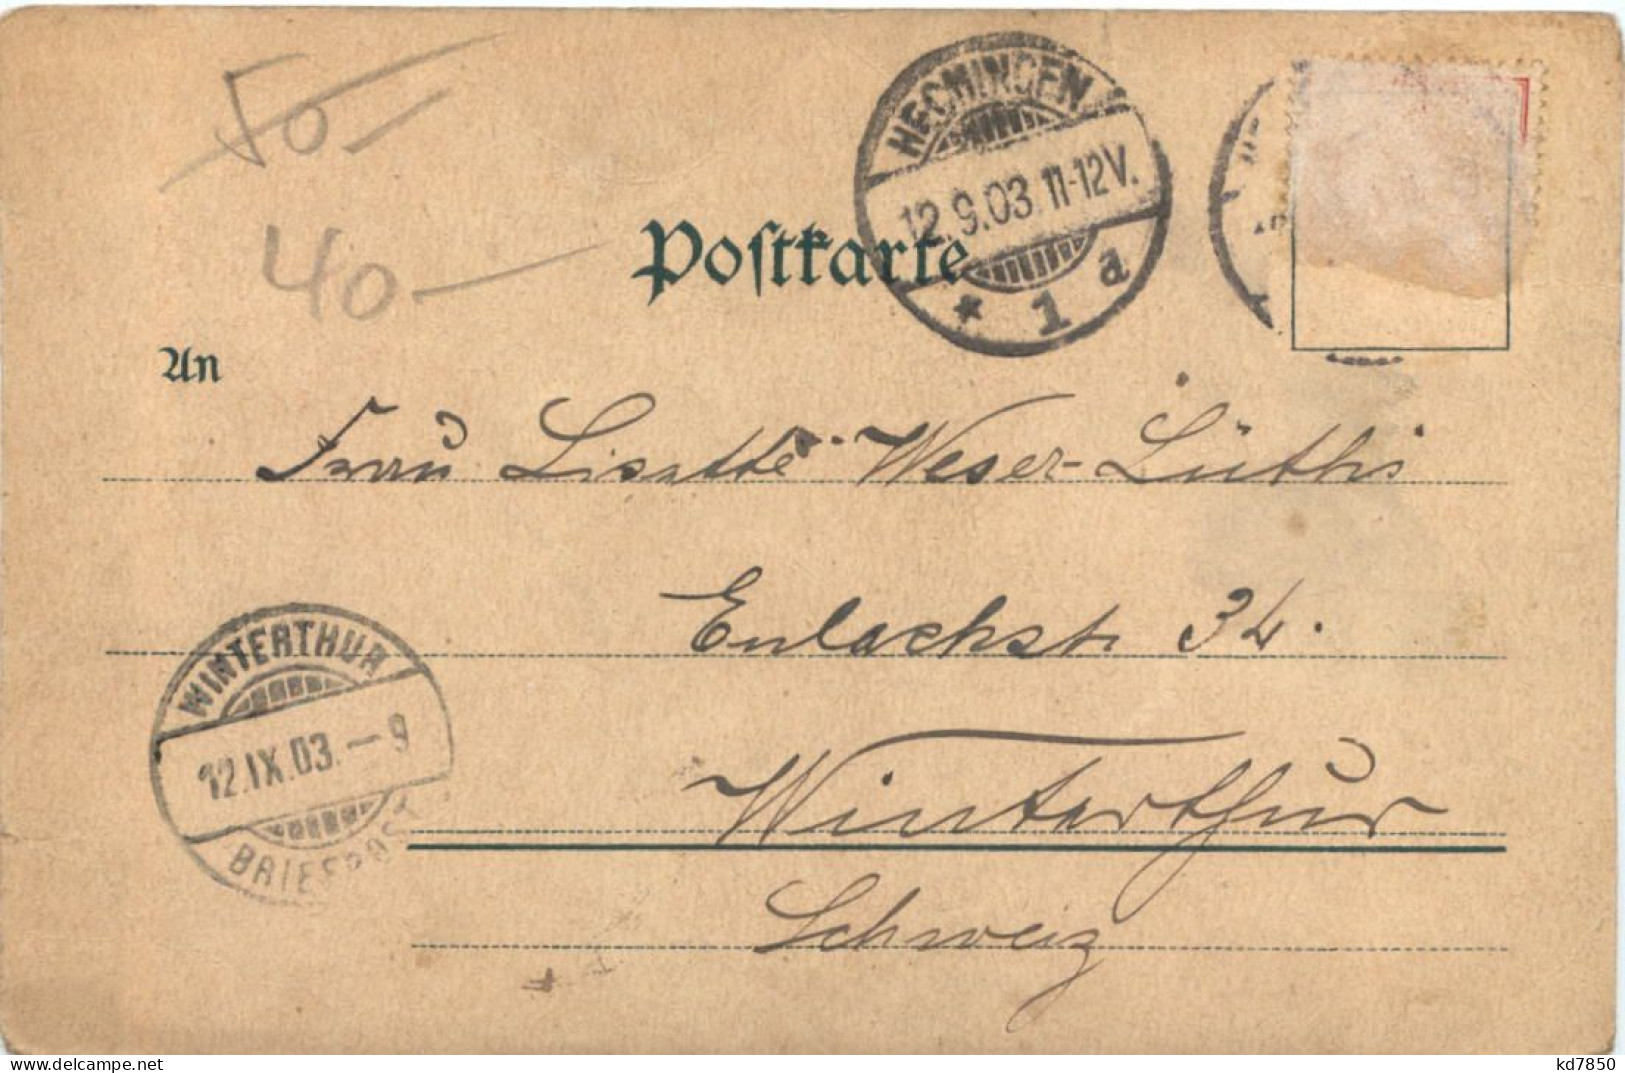 50—
40—
HECHINGEN
12.9.03.11-12V.
* 1 a
Postkarte
An
Frau Lisette Weser-Lüthi
Eulachstr 34.
Winterthur
Schweiz
WINTERTHUR
12.IX.03.—9
BRIEFPOST
kd7850